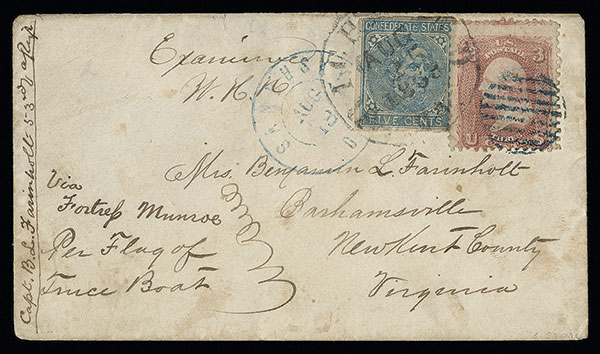 Capt. B. L. Farinholt 53rd Va Regt
Examined
W. H. H.
CONFEDERATE STATES
FIVE CENTS
U.S. POSTAGE
3
U
SAN
O.
AUG
Via
Fortress Munroe
Per Flag of
Truce Boat
Mrs. Benjamin L. Farinholt
Barhamsville
New Kent County
Virginia